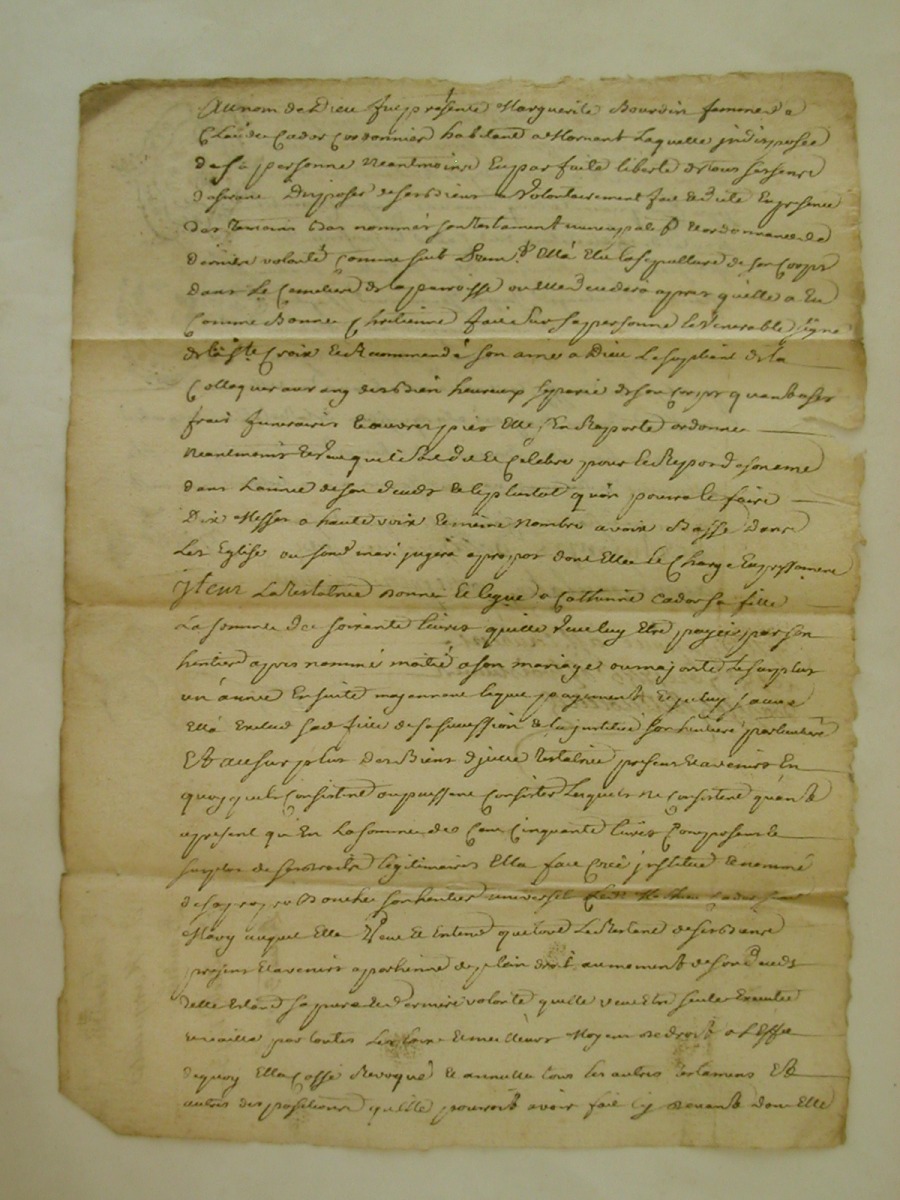 Au nom de Dieu fut présente Marguerite Bourdin femme a
Claude Cador Cordonnier habitant a Mornant Laquelle indisposée
de sa personne Neantmoins En parfaite liberté de tous ses sens
disposer de ses biens a Volontairement fait En presence
des Temoins bas nommés son testament nuncupatif et ordonnance de
derniere volonté comme suit Elle a Elu la sepulture de son Corps
dans Le Cemetiere de la parroisse ou Elle decedera apres quelle a Eu
Comme Bonne Chretienne fait Sur sa personne le Venerable signe
de la ste Croix et Recommendé son ame a Dieu Le supliant de la
Colloquer au rang des bien heureux separée de son Corps quant a ses
frais funeraires et oeuvres pies Elle s'En Raporte ordonne
Neantmoins et Veut quil soit dit et Celebré pour Le Repos de son ame
dans Lannée de son deceds et le plustot quon pourra le faire
Dix Messes a haute voix et meme Nombre a voix Basse dans
Les Eglise ou sond mari jugera apropos dont Elle Le Charge Expressement
Item La testatrice donne et legue a Catherine Cador sa fille
La somme de soixante livres quelle Veut luy Etre payée par son
heritier apres nommé moitié a son mariage ou majorité Le surplus
un année Ensuite moyennant lequel payement
Elle Exclud sad fille de sa succession et la institue son heritiere particuliere
Et au surplus des Biens dicelle testatrice presents et avenirs En
quoy quils Consistent ou puissent Consister Lesquels ne Consistent quant
apresent qu'En La somme de Cent Cinquante livres Composant le
surplus de ses droits legitimaires Elle fait Créé institue et nomme
de sa propre Bouche son heritier universel Cador son
Mary auquel Elle Veut Et Entend que tout Le Restant de ses biens
presents et avenirs apartienne de plein droit au moment de son deceds
telle Estant sa pure et derniere volonté quelle veut Etre seule Executée
et vaille par toutes Les loix et meilleurs Moyens de droit a l'Effet
dequoy Elle Casse Revoque et annulle tous les autres testamens Et
autres dispositions quelle pourroit avoir fait cy devant dont Elle